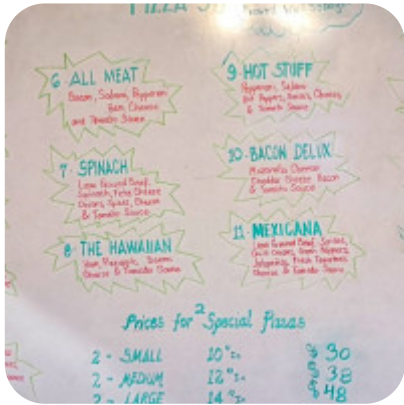 PIZZA
6 ALL MEAT
Bacon, Salami, Pepperoni
Ham Cheese
and Tomato Sauce
7 · SPINACH
Lean Ground Beef,
Spinach, Feta Cheese
Onions, Spice, Cheese
& Tomato Sauce
8 · THE HAWAIIAN
Ham, Pineapple, Bacon,
Cheese & Tomato Sauce
9 · HOT STUFF
Pepperoni, Salami
Hot Peppers, Onions, Cheese
& Tomato Sauce
10 · BACON DELUX
Mozzarella Cheese
Cheddar Cheese Bacon
& Tomato Sauce
11 · MEXICANA
Lean Ground Beef,
Green Peppers,
Jalapeños, Fresh
Cheese & Tomato Sauce
Prices for 2 Special Pizzas
2 - SMALL 10" $30
2 - MEDIUM 12" $38
2 - LARGE 14" $48